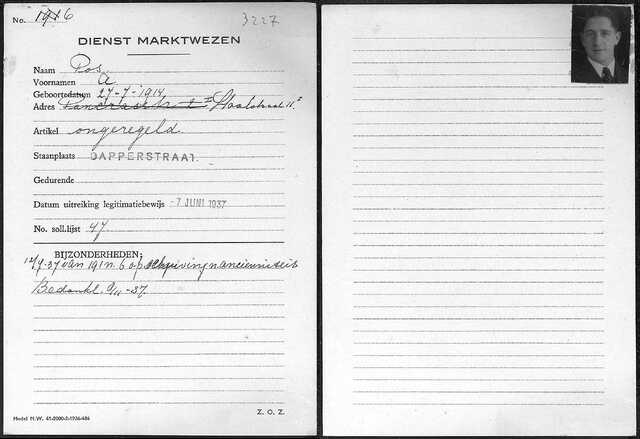 No. 1916
3227
DIENST MARKTWEZEN
Naam Pos
Voornamen A
Geboortedatum 27-7-1914
Adres Staalstraat 11²
Artikel ongeregeld.
Staanplaats DAPPERSTRAAT.
Gedurende
Datum uitreiking legitimatiebewijs -7 JUNI 1937
No. soll.lijst 47
BIJZONDERHEDEN:
12/7-37 van 191 n. 6 op
Bedankt. 9/11-37.
Model M.W. 61-2000-2-1936-486
Z. O. Z.